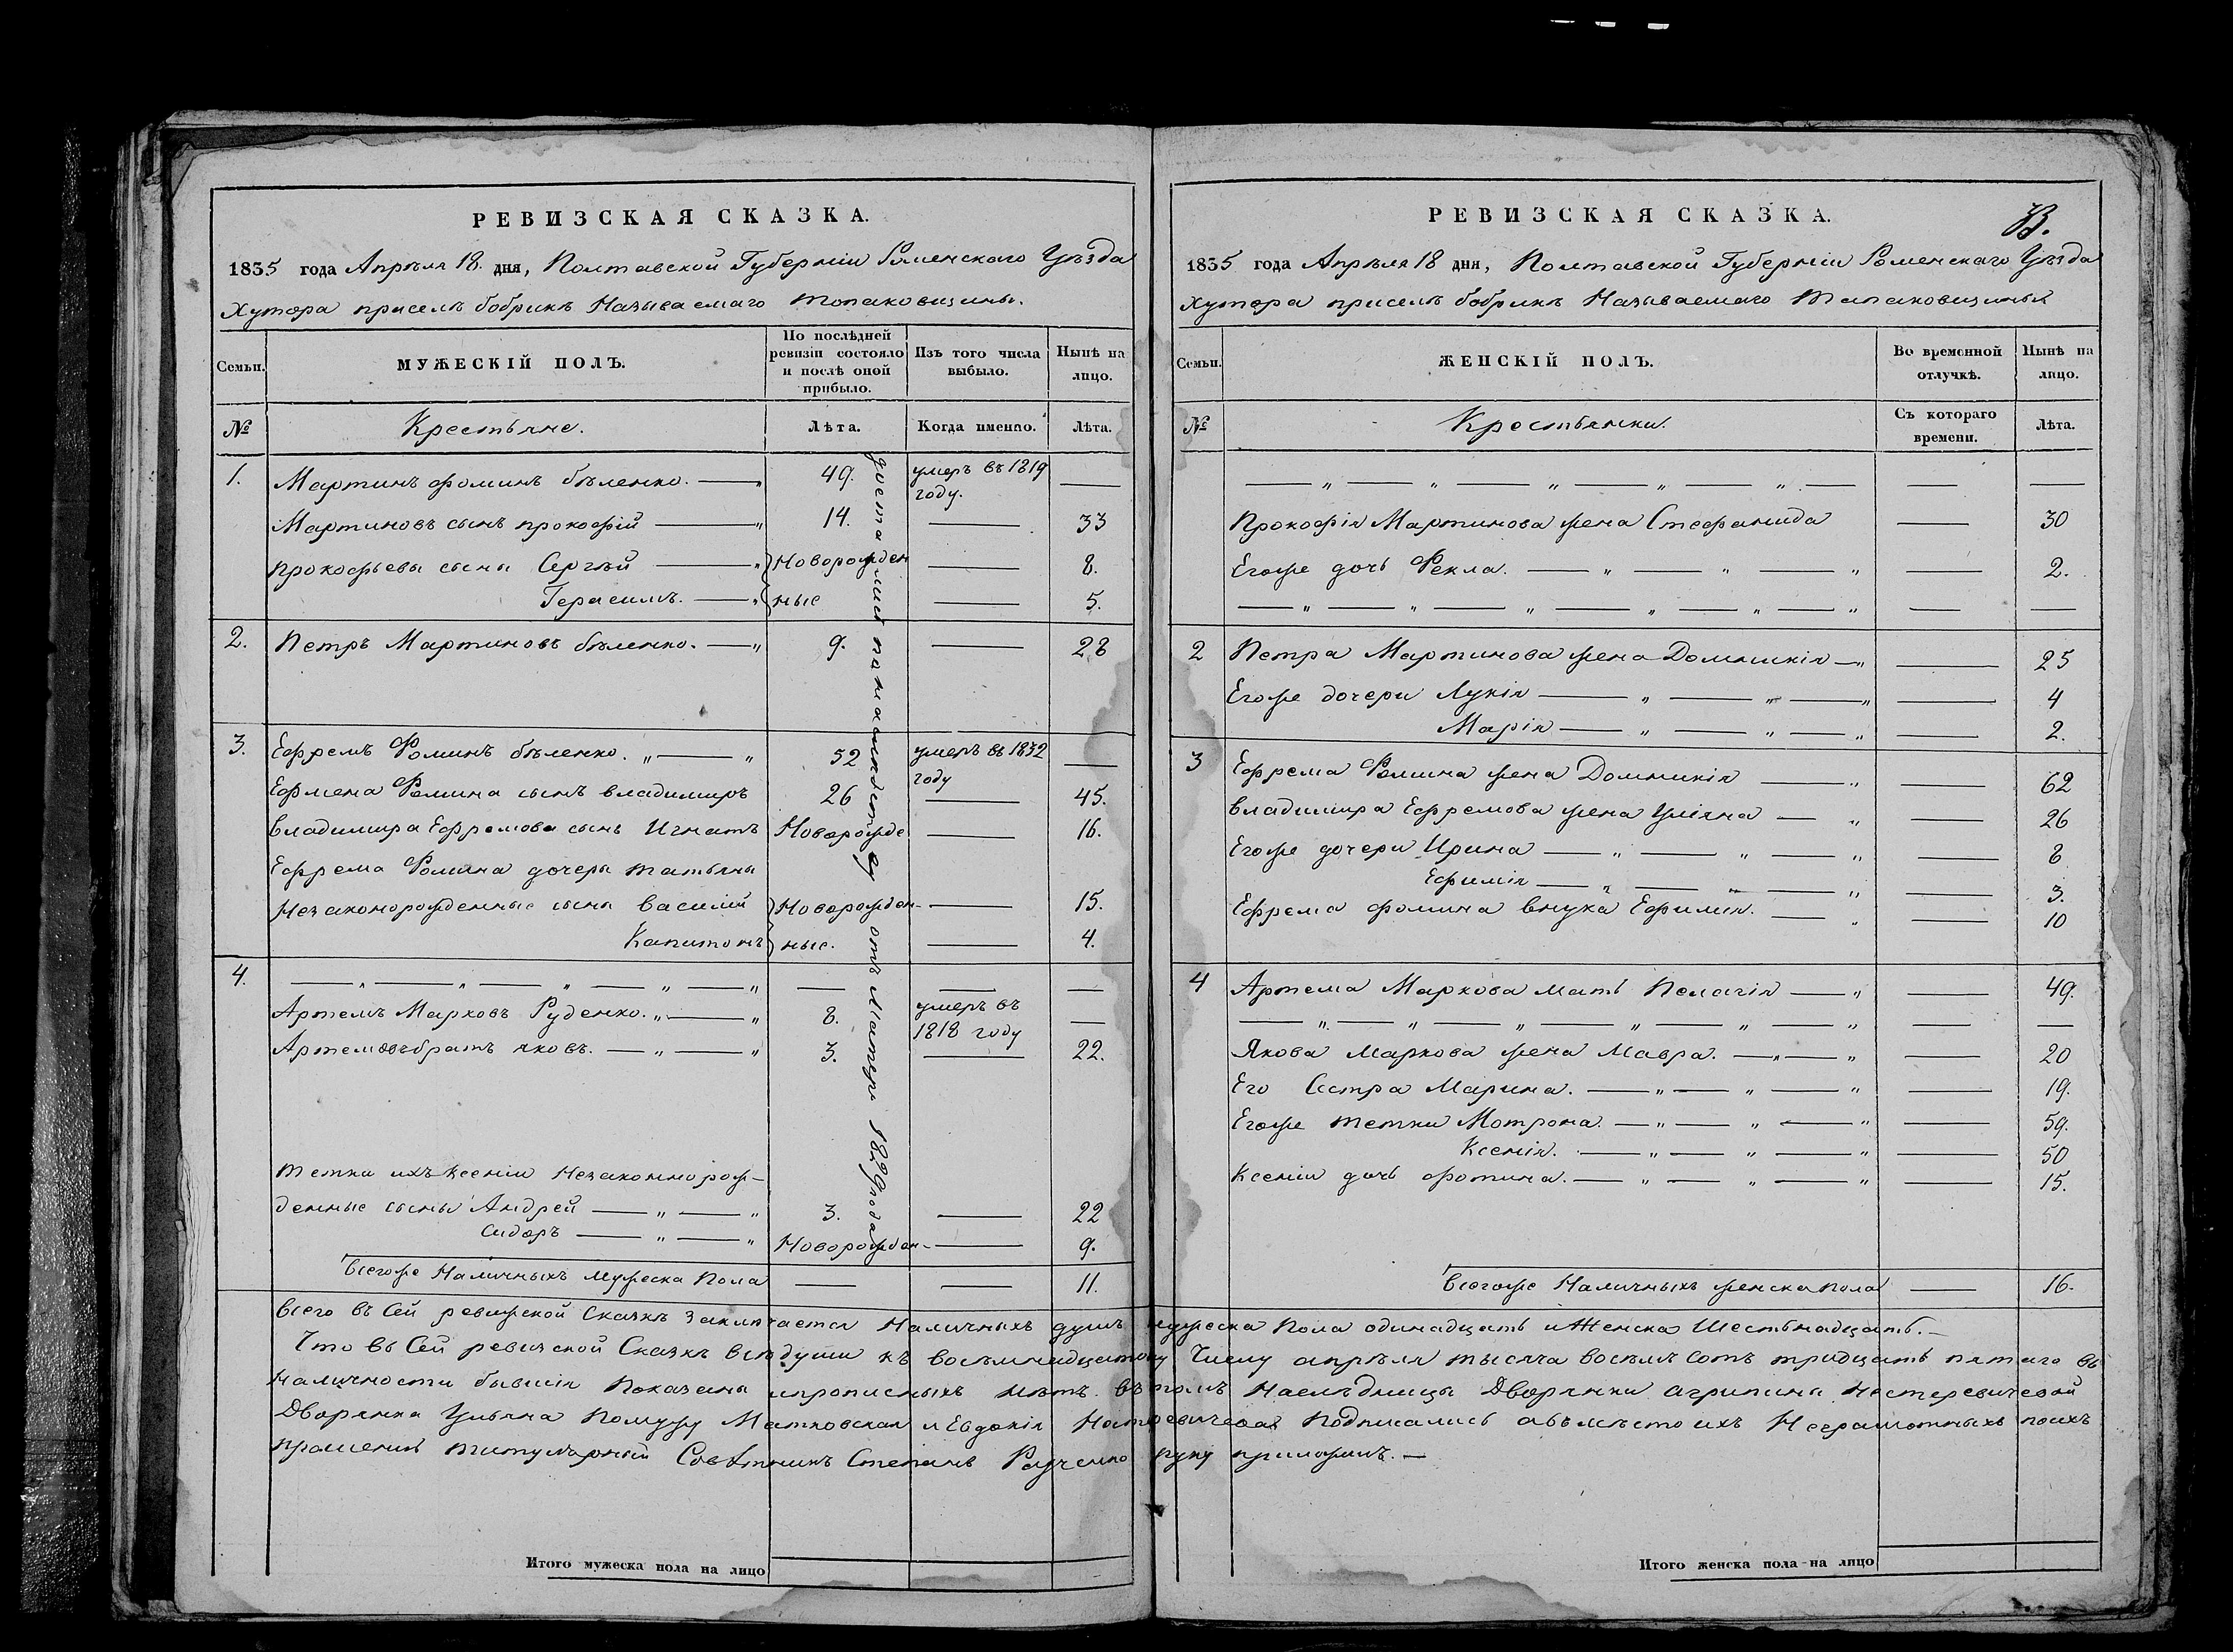 РЕВИЗСКАЯ СКАЗКА.
1835 года Апрѣля 18. дня, Полтавской Губерніи Роменскаго Уѣзда
Хутора приселѣ бобрикѣ Называемаго
Семьи.
МУЖЕСКІЙ ПОЛЪ.
По послѣдней ревизіи состояло и послѣ оной прибыло.
Изъ того числа выбыло.
Нынѣ на лицо.
№
Крестьяне.
Лѣта.
Когда именно.
Лѣта.
1. Мартинъ фоминъ бѣленко. — 49. умеръ въ 1819 году. —
Мартиновъ сынъ прокофій — 14. — 33
прокофьевы сыны Сергѣй — Новорожден — 8.
Герасимъ. — ные — 5.
2. Петръ Мартиновъ бѣленко. — 9. — 28
3. Ефремъ Фоминъ бѣленко. „ — „ 52 умеръ въ 1832 году —
Ефмена Фомина сынъ владимиръ 26 — 45.
владимира Ефремова сынъ Игнатъ Новорожде — 16.
Ефрема Фомина дочеры татьяны
Незаконорожденные сыны василій Новорожден- — 15.
Капитонъ ные. — 4.
4. — „ — „ — „ — „ — „ — — —
Артемъ Марковъ Руденко. „ — „ 8. умеръ въ 1818 году —
Артемовъ братъ яковъ. — „ — „ 3. — 22.
тетки ихъ Ксеніи Незаконнорож-
денные сыны Андрей — „ — „ 3. — 22
Сидоръ — „ — „ Новорожден- — 9.
Всегоже Наличныхъ мужеска Пола — — 11.
отъ Матери 1829 года
РЕВИЗСКАЯ СКАЗКА.
1835 года Апрѣля 18 дня, Полтавской Губерніи Роменскаго Уѣзда
Хутора приселѣ бобрикѣ Называемаго
Семьи.
ЖЕНСКІЙ ПОЛЪ.
Во временной отлучкѣ.
Нынѣ на лицо.
№
Крестьянки.
Съ котораго времени.
Лѣта.
— „ — „ — „ — „ — „ — — —
Прокофія Мартинова жена Стефанида — 30
Егоже дочь Фекла. — „ — „ — „ — 2.
— „ — „ — „ — „ — „ — „ — —
2 Петра Мартинова жена Домникія — „ — 25
Егоже дочери Лукія — „ — „ — „ — 4
Марія — „ — „ — „ — 2.
3 Ефрема Фомина жена Домникія — „ — 62
владимира Ефремова жена Уліяна — „ — 26
Егоже дочери Ирина — „ — „ — „ — 8
Ефимія — „ — „ — „ — 3.
Ефрема фомина внука Ефимія. — „ — 10
4 Артема Маркова мать Пелагія — „ — 49.
— „ — „ — „ — „ — „ — „ — —
Якова Маркова жена Мавра. — „ — „ — 20
Его Сестра Марина. — „ — „ — „ — 19.
Егоже тетки Мотрона. — „ — „ — „ — 59.
Ксенія. — „ — „ — „ — 50
Ксеніи дочь фотина. — „ — „ — „ — 15.
Всегоже Наличныхъ женска пола — 16.
Всего въ Сей ревизской Сказкѣ Заключается Наличныхъ душъ мужеска Пола одинадцать и Женска Шестьнадцать. —
Что въ Сей ревизской Сказкѣ всѣ души къ восемнадцатому Числу апрѣля тысяча восемъ сотъ тридцать пятаго въ
Наличности бывшія Показаны ипрописныхъ нѣтъ. въ томъ Наслѣдницы Дворянки агрипина Нестеревичевой
Дворянка Ульяна Помужу Матковская и Евдокія Нестеревичева Подписались авмѣсто ихъ Неграмотныхъ поихъ
прошенію титулярный Совѣтникъ Степанъ руку приложилъ. —
Итого мужеска пола на лицо
Итого женска пола на лицо